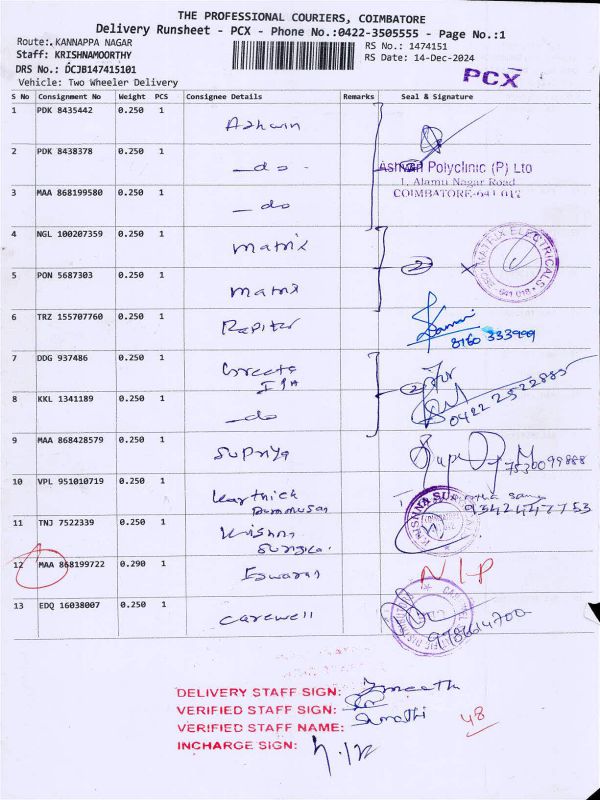 THE PROFESSIONAL COURIERS, COIMBATORE
Delivery Runsheet - PCX - Phone No.:0422-3505555 - Page No.:1
Route:.KANNAPPA NAGAR
RS No.: 1474151
Staff: KRISHNAMOORTHY
RS Date: 14-Dec-2024
DRS No.: DCJB147415101
Vehicle: Two Wheeler Delivery
PCX
S No Consignment No Weight PCS Consignee Details Remarks Seal & Signature
1 PDK 8435442 0.250 1 Ashwin
2 PDK 8438378 0.250 1 -do-
Ashwin Polyclinic (P) Ltd
1, Alamu Nagar Road
COIMBATORE-641 012
3 MAA 868199580 0.250 1 -do
4 NGL 100207359 0.250 1 matrix
2 X MATRIX ELECTRICALS
641 018
5 PON 5687303 0.250 1 matrix
6 TRZ 155707760 0.250 1 Rapiter
8760 333999
7 DDG 937486 0.250 1 Greeta
2
8 KKL 1341189 0.250 1 -do
0422 2522885
9 MAA 868428579 0.250 1 Supriya
7530099888
10 VPL 951010719 0.250 1 Karthick
9342447753
11 TNJ 7522339 0.250 1 Krishna
Surgical
12 MAA 868199722 0.290 1 Eswaran N/P
13 EDQ 16038007 0.250 1 Carewell
DELIVERY STAFF SIGN:
VERIFIED STAFF SIGN:
VERIFIED STAFF NAME: Sumathi
48
INCHARGE SIGN: